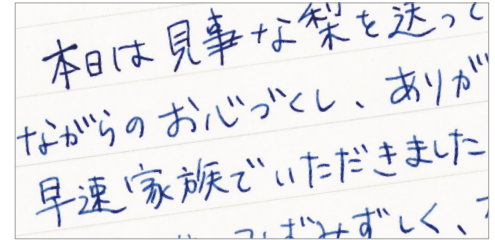 本日は見事な梨を送って
ながらのお心づくし、ありが
早速家族でいただきました
みずしく、